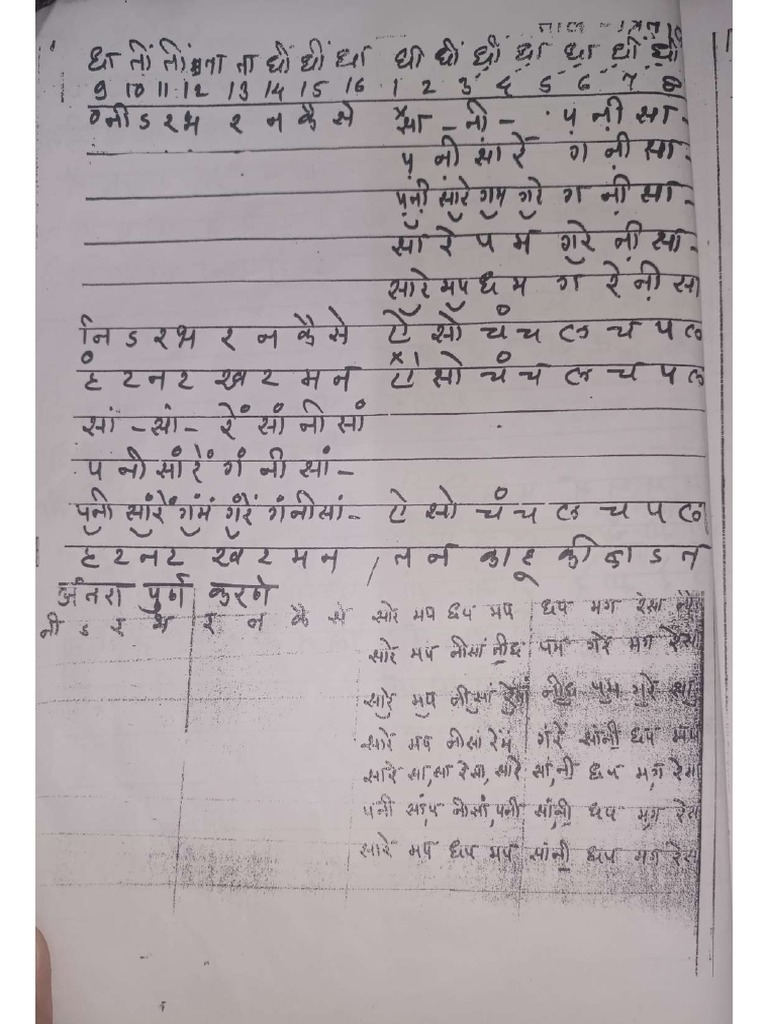 ताल -
धा तीं तीं ता ता धीं धीं धा धा धीं धीं धा धा धीं धीं धा
9 10 11 12 13 14 15 16 1 2 3 4 5 6 7 8
नी ऽ र भ र न कै से सा - नी - प़ ऩी सा -
प़ ऩी सा रें ग ऩी सा -
प़ऩी सारे गम गरे ग ऩी सा -
सा रे प म गरे ऩी सा -
सारे मप ध म ग रे ऩी सा
नि ऽ र भ र न कै से ऐ सो चं च ल च प ल
ह ट न ट ख ट म न ऐ सो चं च ल च प ल
सां - सां - रें सां नी सां
प नी सां रें गं नी सां -
पनी सांरें गंमं गंरें गं नी सां - ऐ सो चं च ल च प ल
ह ट न ट ख ट म न / त न का हू की ऽ न
अंतरा पुर्ण करणे
नी ऽ र भ र न कै से सारे मप धप मप धप मग रेसा
सारे मप नीसां नी॒ध पम गरे मग रेसा
सारे मप नीसां नी॒ध पम गरे
सारे मप नीसां रेंमं गंरें सांनी॒ धप मप
सारे सा,सा रेसा, सारे सां,नी॒ धप मग रेसा
पनी सां,प नीसां, पनी सां,नी॒ धप मग रेसा
सारे मप धप मप सांनी॒ धप मग रेसा